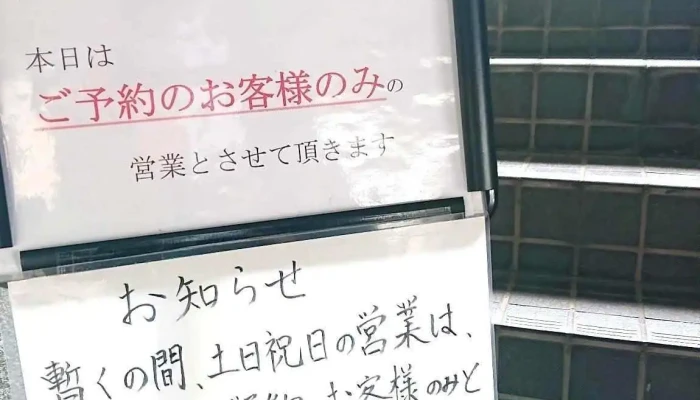 本日は
ご予約のお客様のみの
営業とさせて頂きます
お知らせ
暫くの間、土日祝日の営業は、
お客様のみと